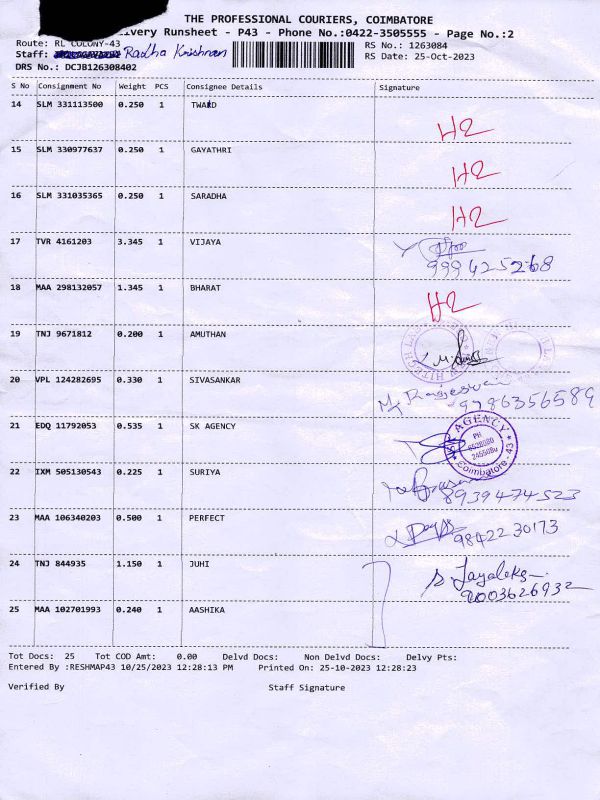 THE PROFESSIONAL COURIERS, COIMBATORE
livery Runsheet - P43 - Phone No.:0422-3505555 - Page No.:2
Route: RL COLONY-43 RS No.: 1263084
Staff: Radha Krishnan RS Date: 25-Oct-2023
DRS No.: DCJB126308402
S No Consignment No Weight PCS Consignee Details Signature
14 SLM 331113500 0.250 1 TWARD
H2
15 SLM 330977637 0.250 1 GAYATHRI
H2
16 SLM 331035365 0.250 1 SARADHA
H2
17 TVR 4161203 3.345 1 VIJAYA
9994425268
18 MAA 298132057 1.345 1 BHARAT
H2
19 TNJ 9671812 0.200 1 AMUTHAN
20 VPL 124282695 0.330 1 SIVASANKAR
9786356589
21 EDQ 11792053 0.535 1 SK AGENCY
AGENCY
PH
Coimbatore - 43
22 IXM 505130543 0.225 1 SURIYA
8939474523
23 MAA 106340203 0.500 1 PERFECT
98422 30173
24 TNJ 844935 1.150 1 JUHI
9003626932
25 MAA 102701993 0.240 1 AASHIKA
Tot Docs: 25 Tot COD Amt: 0.00 Delvd Docs: Non Delvd Docs: Delvy Pts:
Entered By :RESHMAP43 10/25/2023 12:28:13 PM Printed On: 25-10-2023 12:28:23
Verified By Staff Signature